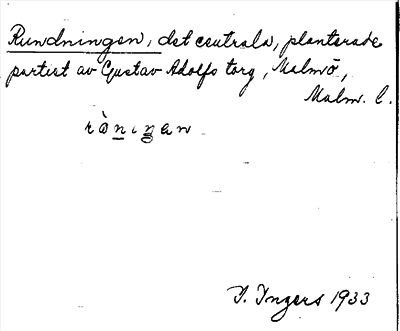 Rundningen, det centrala, planterade
partiet av Gustav Adolfs torg, Malmö,
Malm. C.
rònıŋan
I. Ingers 1933